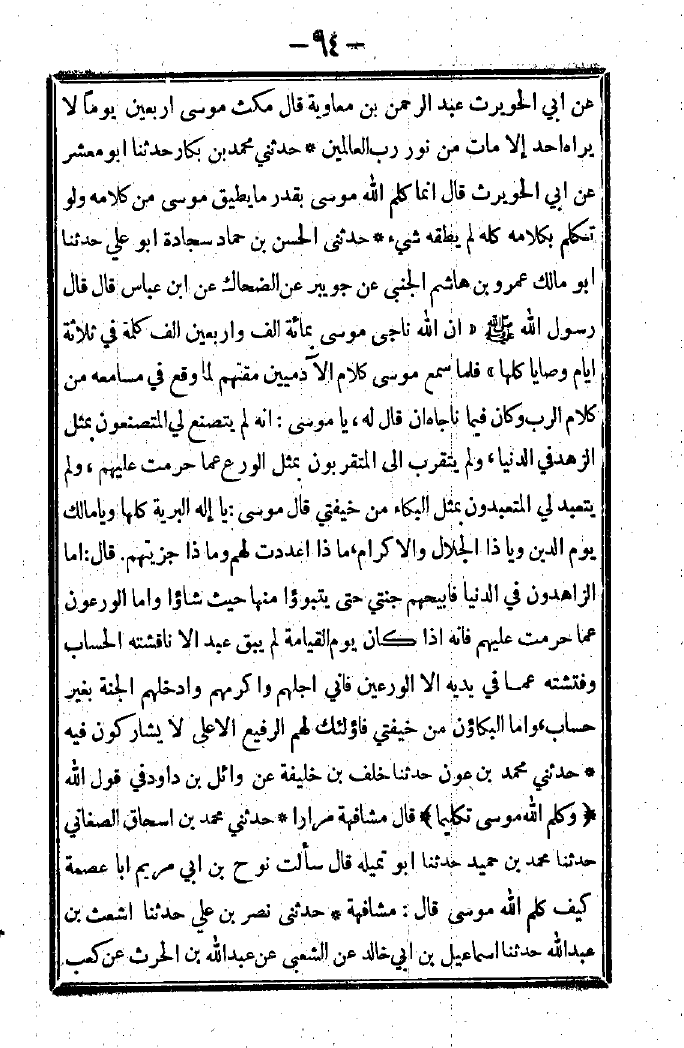 — ٩٤ —
عن ابي الحويرث عبد الرحمن بن معاوية قال مكث موسى اربعين يوماً لا
يراه احد إلا مات من نور رب العالمين * حدثني محمد بن بكار حدثنا ابو معشر
عن ابي الحويرث قال انما كلم الله موسى بقدر ما يطيق موسى من كلامه ولو
تكلم بكلامه كله لم يطقه شيء * حدثنى الحسن بن حماد سجادة ابو علي حدثنا
ابو مالك عمرو بن هاشم الجنبي عن جويبر عن الضحاك عن ابن عباس قال قال
رسول الله ﷺ « ان الله ناجى موسى بمائة الف واربعين الف كلمة في ثلاثة
ايام وصايا كلها » فلما سمع موسى كلام الآدميين مقتهم لما وقع في مسامعه من
كلام الرب وكان فيما ناجاه ان قال له ، يا موسى : انه لم يتصنع لي المتصنعون بمثل
الزهد في الدنيا ، ولم يتقرب الى المتقربون بمثل الورع عما حرمت عليهم ، ولم
يتعبد لي المتعبدون بمثل البكاء من خيفتي قال موسى : يا إله البرية كلها ويا مالك
يوم الدين ويا ذا الجلال والاكرام ، ما ذا اعددت لهم وما ذا جزيتهم . قال : اما
الزاهدون في الدنيا فابيحهم جنتي حتى يتبوؤا منها حيث شاؤا واما الورعون
عما حرمت عليهم فانه اذا كان يوم القيامة لم يبق عبد الا ناقشته الحساب
وفتشته عما في يديه الا الورعين فاني اجلهم واكرمهم وادخلهم الجنة بغير
حساب ، واما البكاؤن من خيفتي فاؤلئك لهم الرفيع الاعلى لا يشاركون فيه
* حدثني محمد بن عون حدثنا خلف بن خليفة عن وائل بن داود في قول الله
﴿ وكلم الله موسى تكليما ﴾ قال مشافهة مرارا * حدثني محمد بن اسحاق الصغاني
حدثنا محمد بن حميد حدثنا ابو تميله قال سألت نوح بن ابي مريم ابا عصمة
كيف كلم الله موسى قال : مشافهة * حدثنى نصر بن علي حدثنا اشعث بن
عبدالله حدثنا اسماعيل بن ابي خالد عن الشعبي عن عبدالله بن الحرث عن كعب